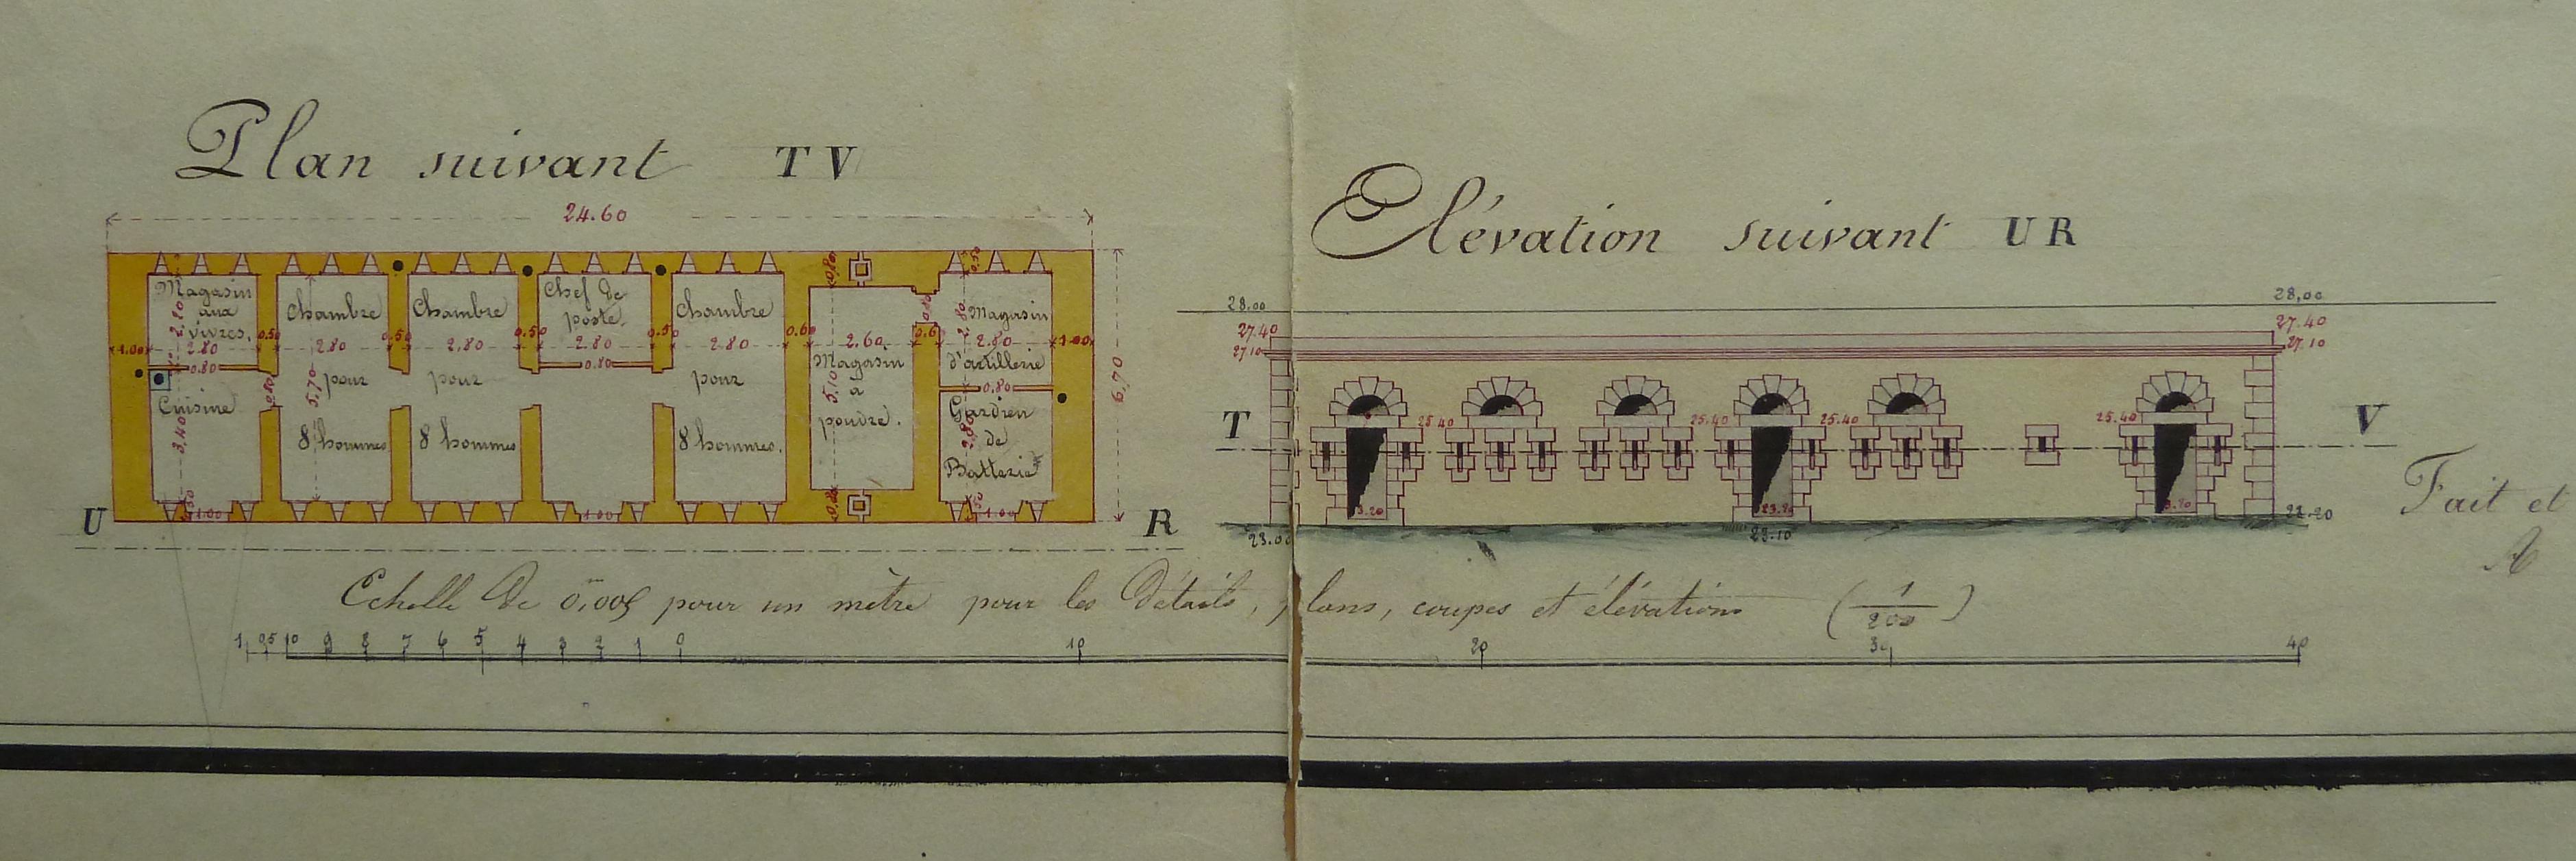 Plan suivant T V
24.60
Magasin
aux
vivres.
2.80
2.80
1.00
0.80
Cuisine
3.40
0.50
1.00
0.50
0.80
Chambre
2.80
pour
5.70
8 hommes
0.50
Chambre
2.80
pour
8 hommes
0.50
Chef de
poste.
2.80
0.80
1.00
0.50
Chambre
2.80
pour
8 hommes.
0.60
0.80
2.60
Magasin
à
poudre.
5.10
0.80
0.80
0.6
0.50
Magasin
2.80
2.80
d'artillerie
0.80
Gardien
de
Batterie
2.80
0.50
1.00
1.00
6,70
U
R
Elévation suivant U R
28.00
28,00
27.40
27.40
27.10
27.10
T
V
25.40
25.40
25.40
25.40
3.20
23.20
3.20
23.00
23.10
22.20
Fait et
Echelle de 0,005 pour un mètre pour les Détails, plans, coupes et élévations (1/200)
1 0,5 10 9 8 7 6 5 4 3 2 1 0 10 20 30 40